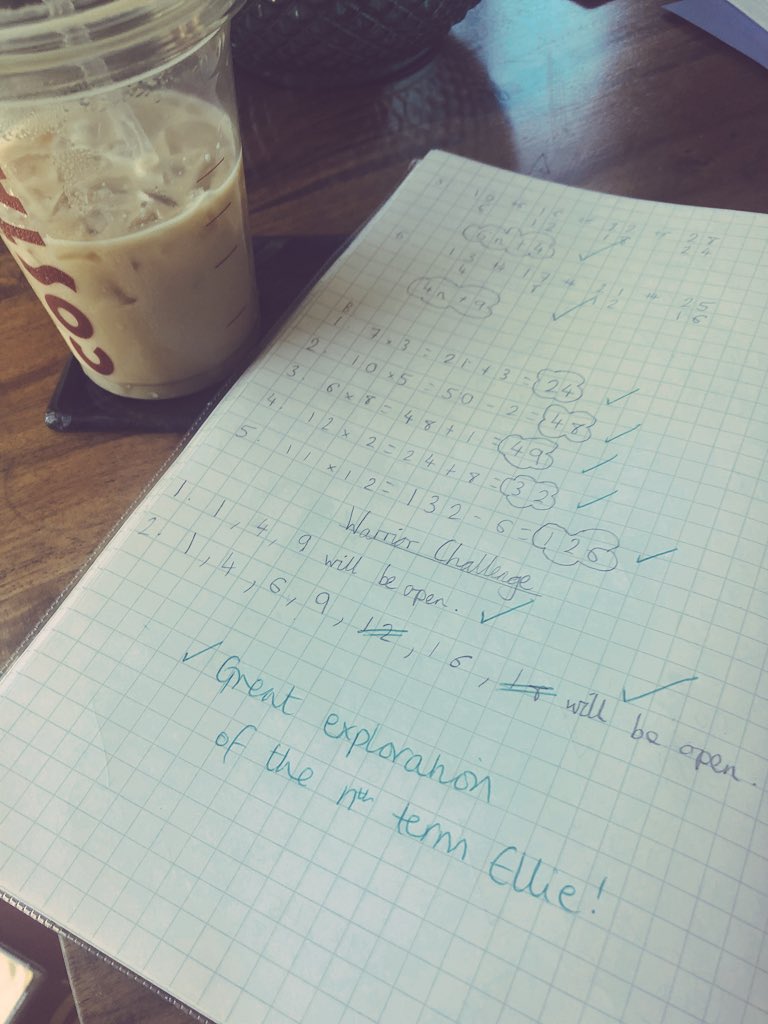 COSTA
6n+4 ✓
6.
13 17 21 25
4 8 12 16
4n+9 ✓
B
1. 7×3=21+3=24 ✓
2. 10×5=50-2=48 ✓
3. 6×8=48+1=49 ✓
4. 12×2=24+8=32 ✓
5. 11×12=132-6=126 ✓
Warrior Challenge
1. 1, 4, 9 will be open. ✓
2. 1, 4, 6, 9, 12, 16, 18 will be open. ✓
✓ Great exploration
of the nth term Ellie!